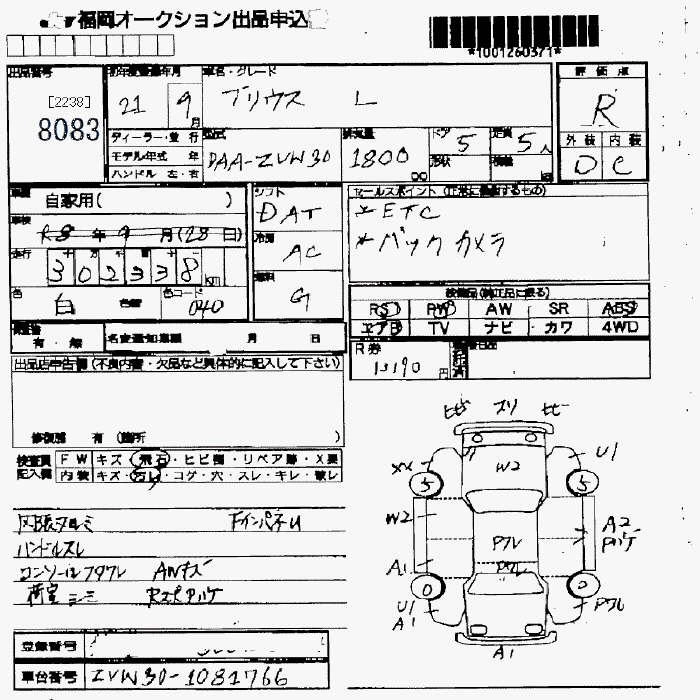 福岡オークション出品申込
*1001260371*
出品番号
[2238]
8083
初年度登録年月
21 9月
ディーラー・並行
モデル年式 年
ハンドル 左・右
車名・グレード
プリウス L
型式
DAA-ZVW30
排気量
1800
ドア
5
形状
定員
5人
積載
評価点
R
外装 内装
D C
車歴
自家用( )
車検
R8 年 9 月(28日)
走行
302338 km
色
白
色替
色コード
040
シフト
DAT
冷房
AC
燃料
G
セールスポイント(正常に機能するもの)
*ETC
*バックカメラ
装備品(純正品に限る)
PS PW AW SR ABS
エアB TV ナビ カワ 4WD
有・無
名変通知期限 月 日
R券
13190円
出品店申告欄(不良内容・欠品など具体的に記入して下さい)
修復歴 有 (箇所 )
検査員 FW キズ・飛石・ヒビ補・リペア跡・X要
記入欄 内装 キズ・汚レ・コゲ・穴・スレ・キレ・破レ
ハンドルスレ
荷室シミ
登録番号
車台番号 ZVW30-1081766
ヒビ スリ ヒビ
XX W2 U1
5 5
W2 A2
Pハゲ
Pワレ
A1 Pワレ
0 0
U1 Pワレ
A1
A1